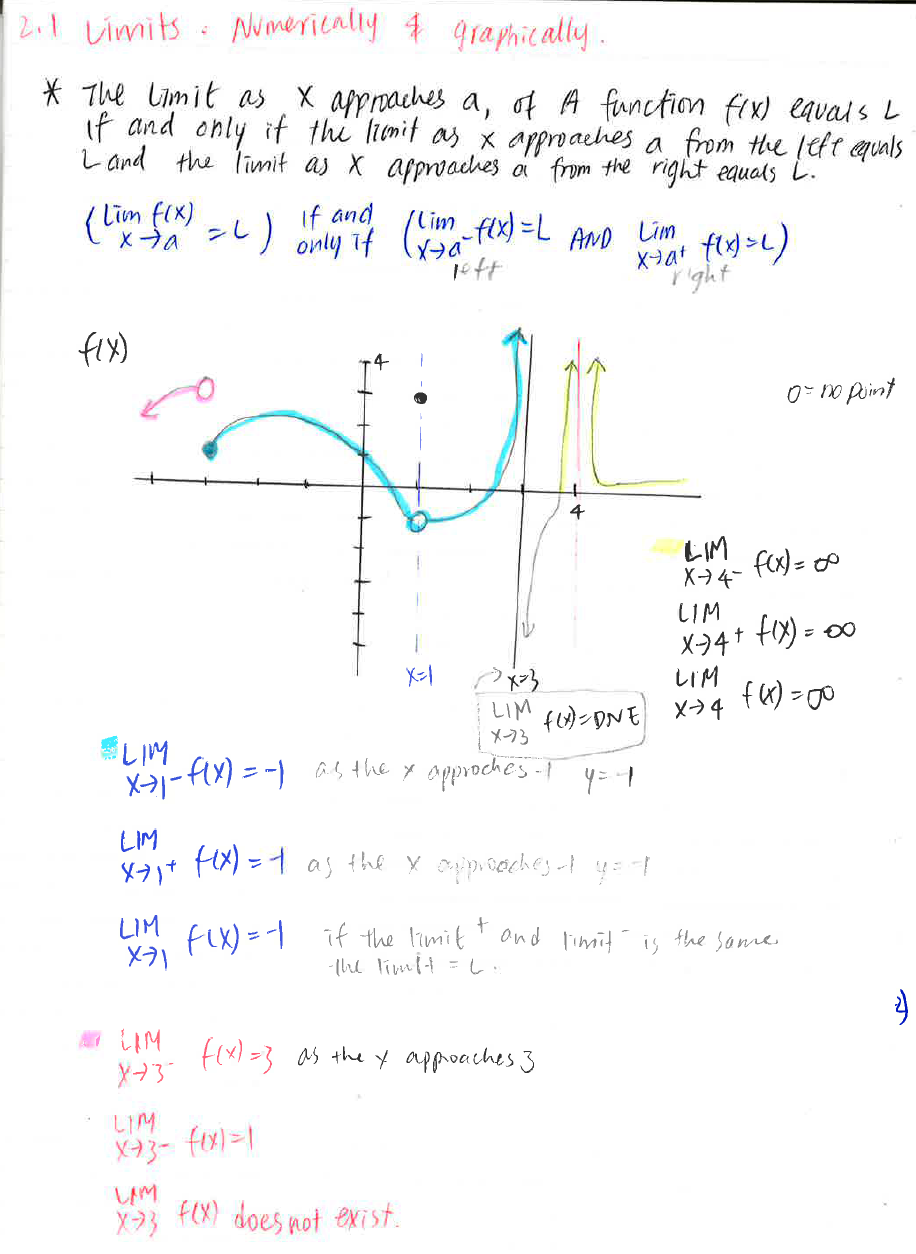 2.1 Limits: Numerically & graphically.
* The Limit as x approaches a, of A function f(x) equals L
if and only if the limit as x approaches a from the left equals
L and the limit as x approaches a from the right equals L.
(Lim x→a f(x) = L) if and only if (Lim x→a⁻ f(x) = L AND Lim x→a⁺ f(x) = L)
left
right
f(x)
4
O = no point
4
LIM x→4⁻ f(x) = ∞
LIM x→4⁺ f(x) = ∞
LIM x→4 f(x) = ∞
x=1
→ x=3
LIM x→3 f(x) = DNE
LIM x→1⁻ f(x) = -1 as the x approches -1 y = -1
LIM x→1⁺ f(x) = -1 as the x approaches -1 y = -1
LIM x→1 f(x) = -1 if the limit⁺ and limit⁻ is the same
the limit = L.
2)
LIM x→3⁻ f(x) = 3 as the x approaches 3
LIM x→3⁻ f(x) = 1
LIM x→3 f(x) does not exist.